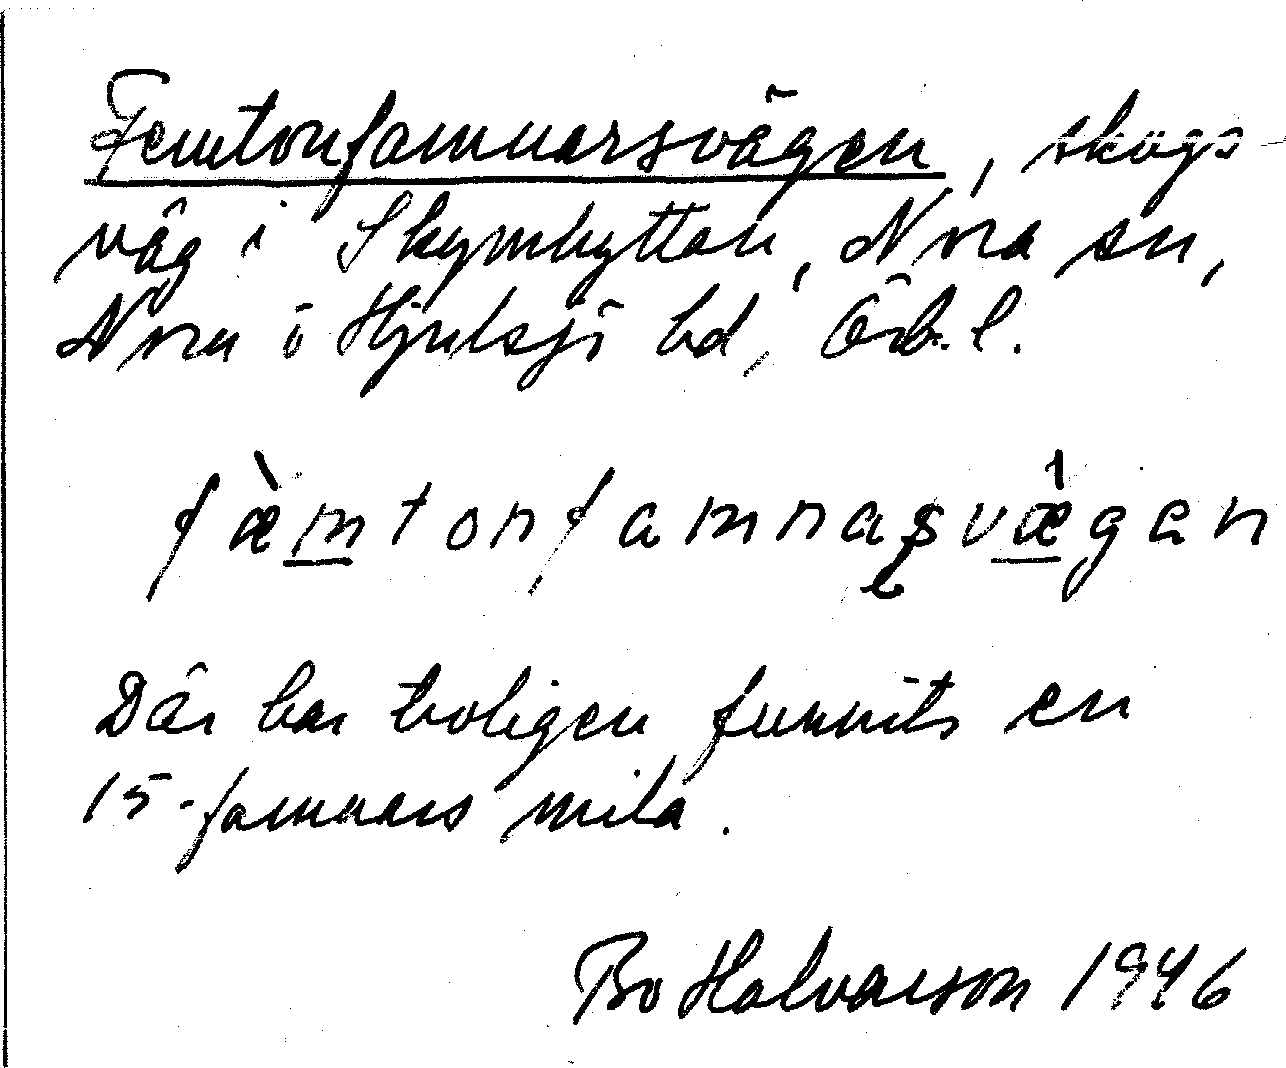 Femtonfamnarsvägen, skogs-
väg i Skymhyttan, Nora sn,
Nora o Hjulsjö bd, Örb. l.
fæ̀mtonfamnaşvæ̂gan
Där har troligen funnits en
15-famnars mila.
Bo Halvarson 1946